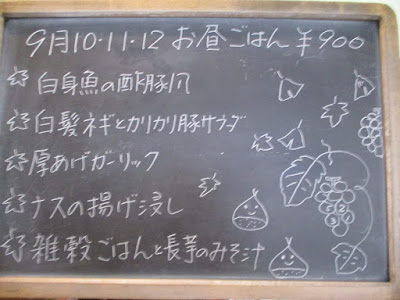 9月10・11・12 お昼ごはん ¥900
☆白身魚の酢豚風
☆白髪ネギとカリカリ豚サラダ
☆厚あげガーリック
☆ナスの揚げ浸し
☆雑穀ごはんと長芋のみそ汁